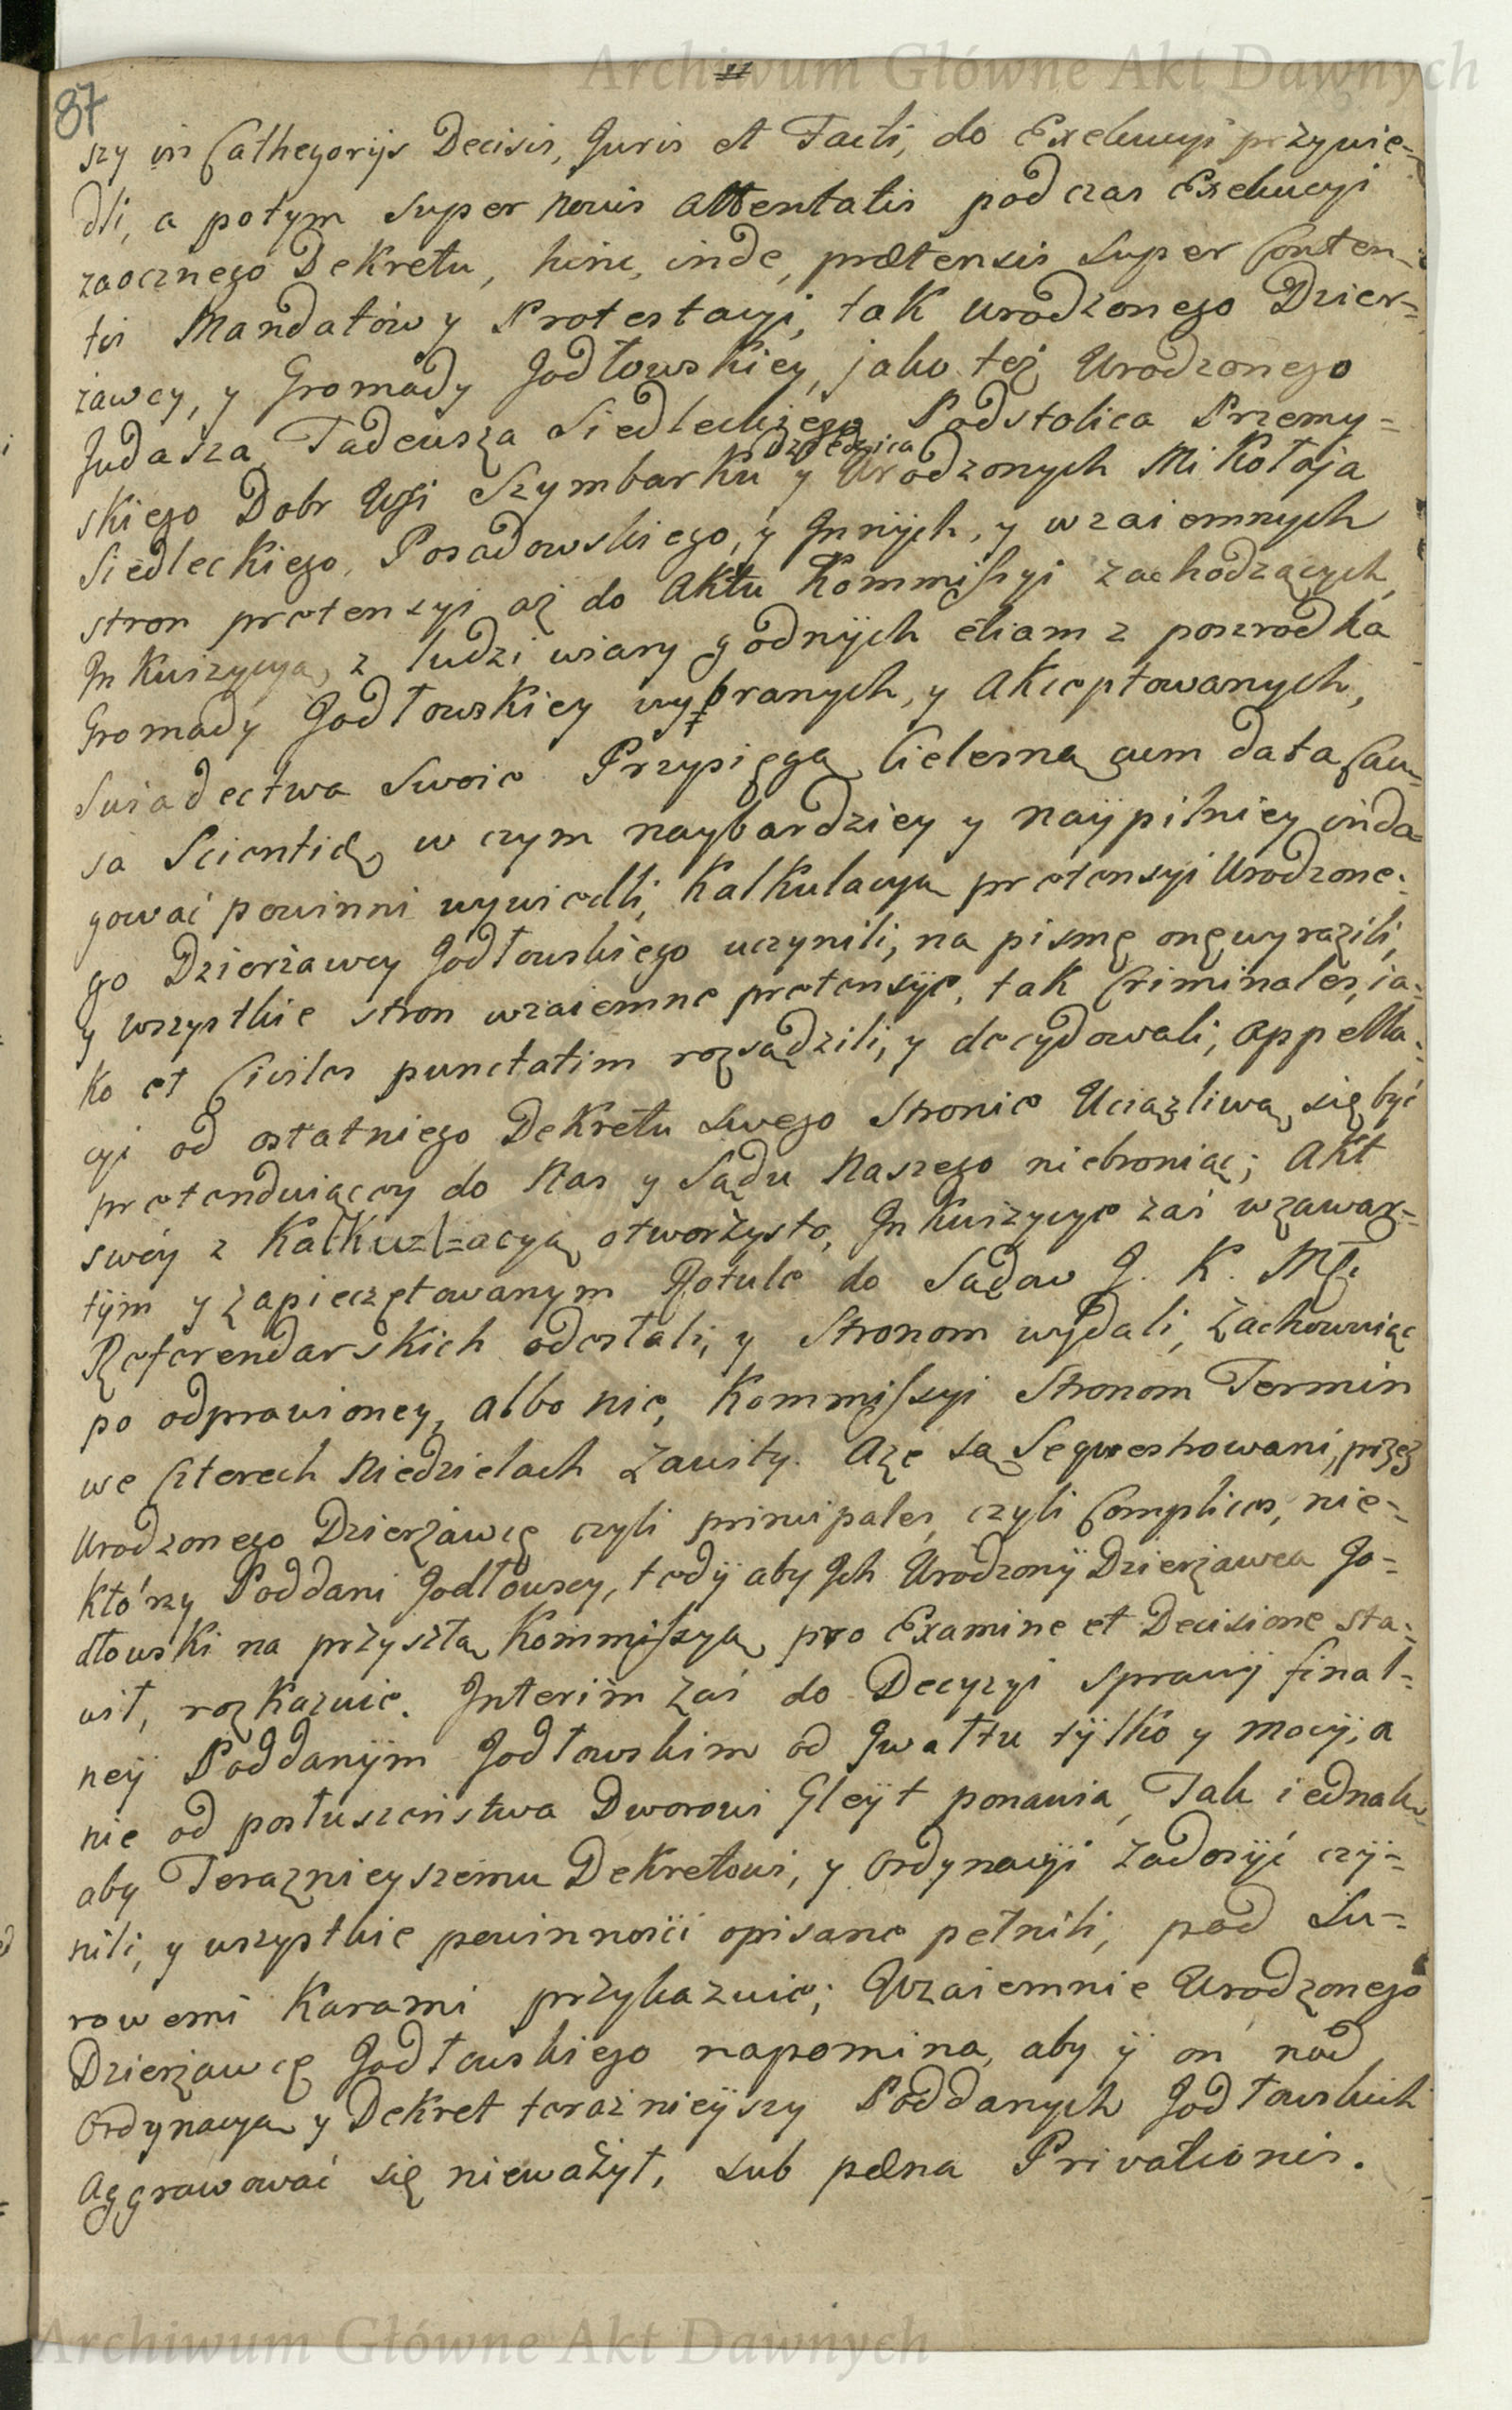 Archiwum Główne Akt Dawnych
87
szy in Cathegorijs Decisis, Juris et Facti, do Exekucyi przywie-
dli, a potym super novis attentatis podczas Exekucyi
zaocznego Dekretu, hinc, inde, prætensis super Conten-
tis Mandatów y Protestacyi, tak urodzonego Dzier-
żawcy, y Gromady Jodłowskiey, jako też Urodzonego
Judasza Tadeusza Siedleckiego Podstolica Przemy-
dziedzica
skiego Dobr Wsi Szymbarku y Urodzonych Mikołaja
Siedleckiego, Posadowskiego, y Innych, y wzaiemnych
stron pretensyi aż do Aktu Kommissyi zachodzących,
Inkwizycyą, z ludzi wiary godnÿch etiam z poszrodka
Gromady Jodłowskiey wybranych, y akceptowanych,
Swiadectwa swoie Przysięgą Cielesną cum data Cau-
sa Scientiæ, w czym naybardziey y naÿpilniey inda-
gować powinni wywiedli, Kalkulacyą pretensyi Urodzone-
go Dzierżawcy Jodłowskiego uczynili, na pismę onę wyrazili,
y wszystkie stron wzaiemne pretensÿe, tak Criminales, ia-
ko et Civiles punctatim rozsądzili, y decydowali, appella-
cyi od ostatniego Dekretu swego Stronie Uciążliwą się być
pretenduiącey do Nas y Sądu Naszego niebroniąc; Akt
swóy z Kalkulacyą otworzysto, Inkwizycye zaś w zawar-
tÿm y zapieczętowanym Rotule do Sądow J. K. Mści
Referendarskich odesłali, y Stronom wydali, Zachowuiąc
po odprawioney, albo nie, Kommissyi Stronom Termin
we Czterech Niedzielach Zawity. Aże są Seqwestrowani, przez
Urodzonego Dzierżawcę czyli principales, czyli Complices, nie-
którzy Poddani Jodłowscy, tedÿ aby Ich Urodzonÿ Dzierżawca Jo-
dłowski na przyszłą Kommissyą pro Examine et Decisione sta-
wił, rozkazuie. Interim zaś do Decyzyi sprawÿ final-
neÿ Poddanÿm Jodłowskim od Gwałtu tÿlko y mocÿ, a
nie od posłuszeństwa Dworowi Gleÿt ponawia, Tak iednak
aby Teraznieyszemu Dekretowi, y ordynacyi zadosÿć czÿ-
nili, y wszystkie powinności opisane pełnili, pod Su-
rowemi Karami przykazuie; Wzaiemnie Urodzonego
Dzierżawcę Jodłowskiego napomina, aby ÿ on nad
Ordynacyą y Dekret teraznieÿszy Poddanych Jodłowskich
Aggrawować się nieważył, sub pæna Privationis.
Archiwum Główne Akt Dawnych